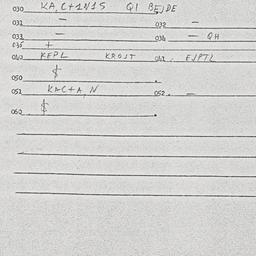 030 KA,C+1N15 QI BEJDE
032 — 032 —
033 — 034 — QH
035 +
040 KEPL KROST 042. EJPTL
$
050 .
051 KAC+A,N 052. —
$
060 .